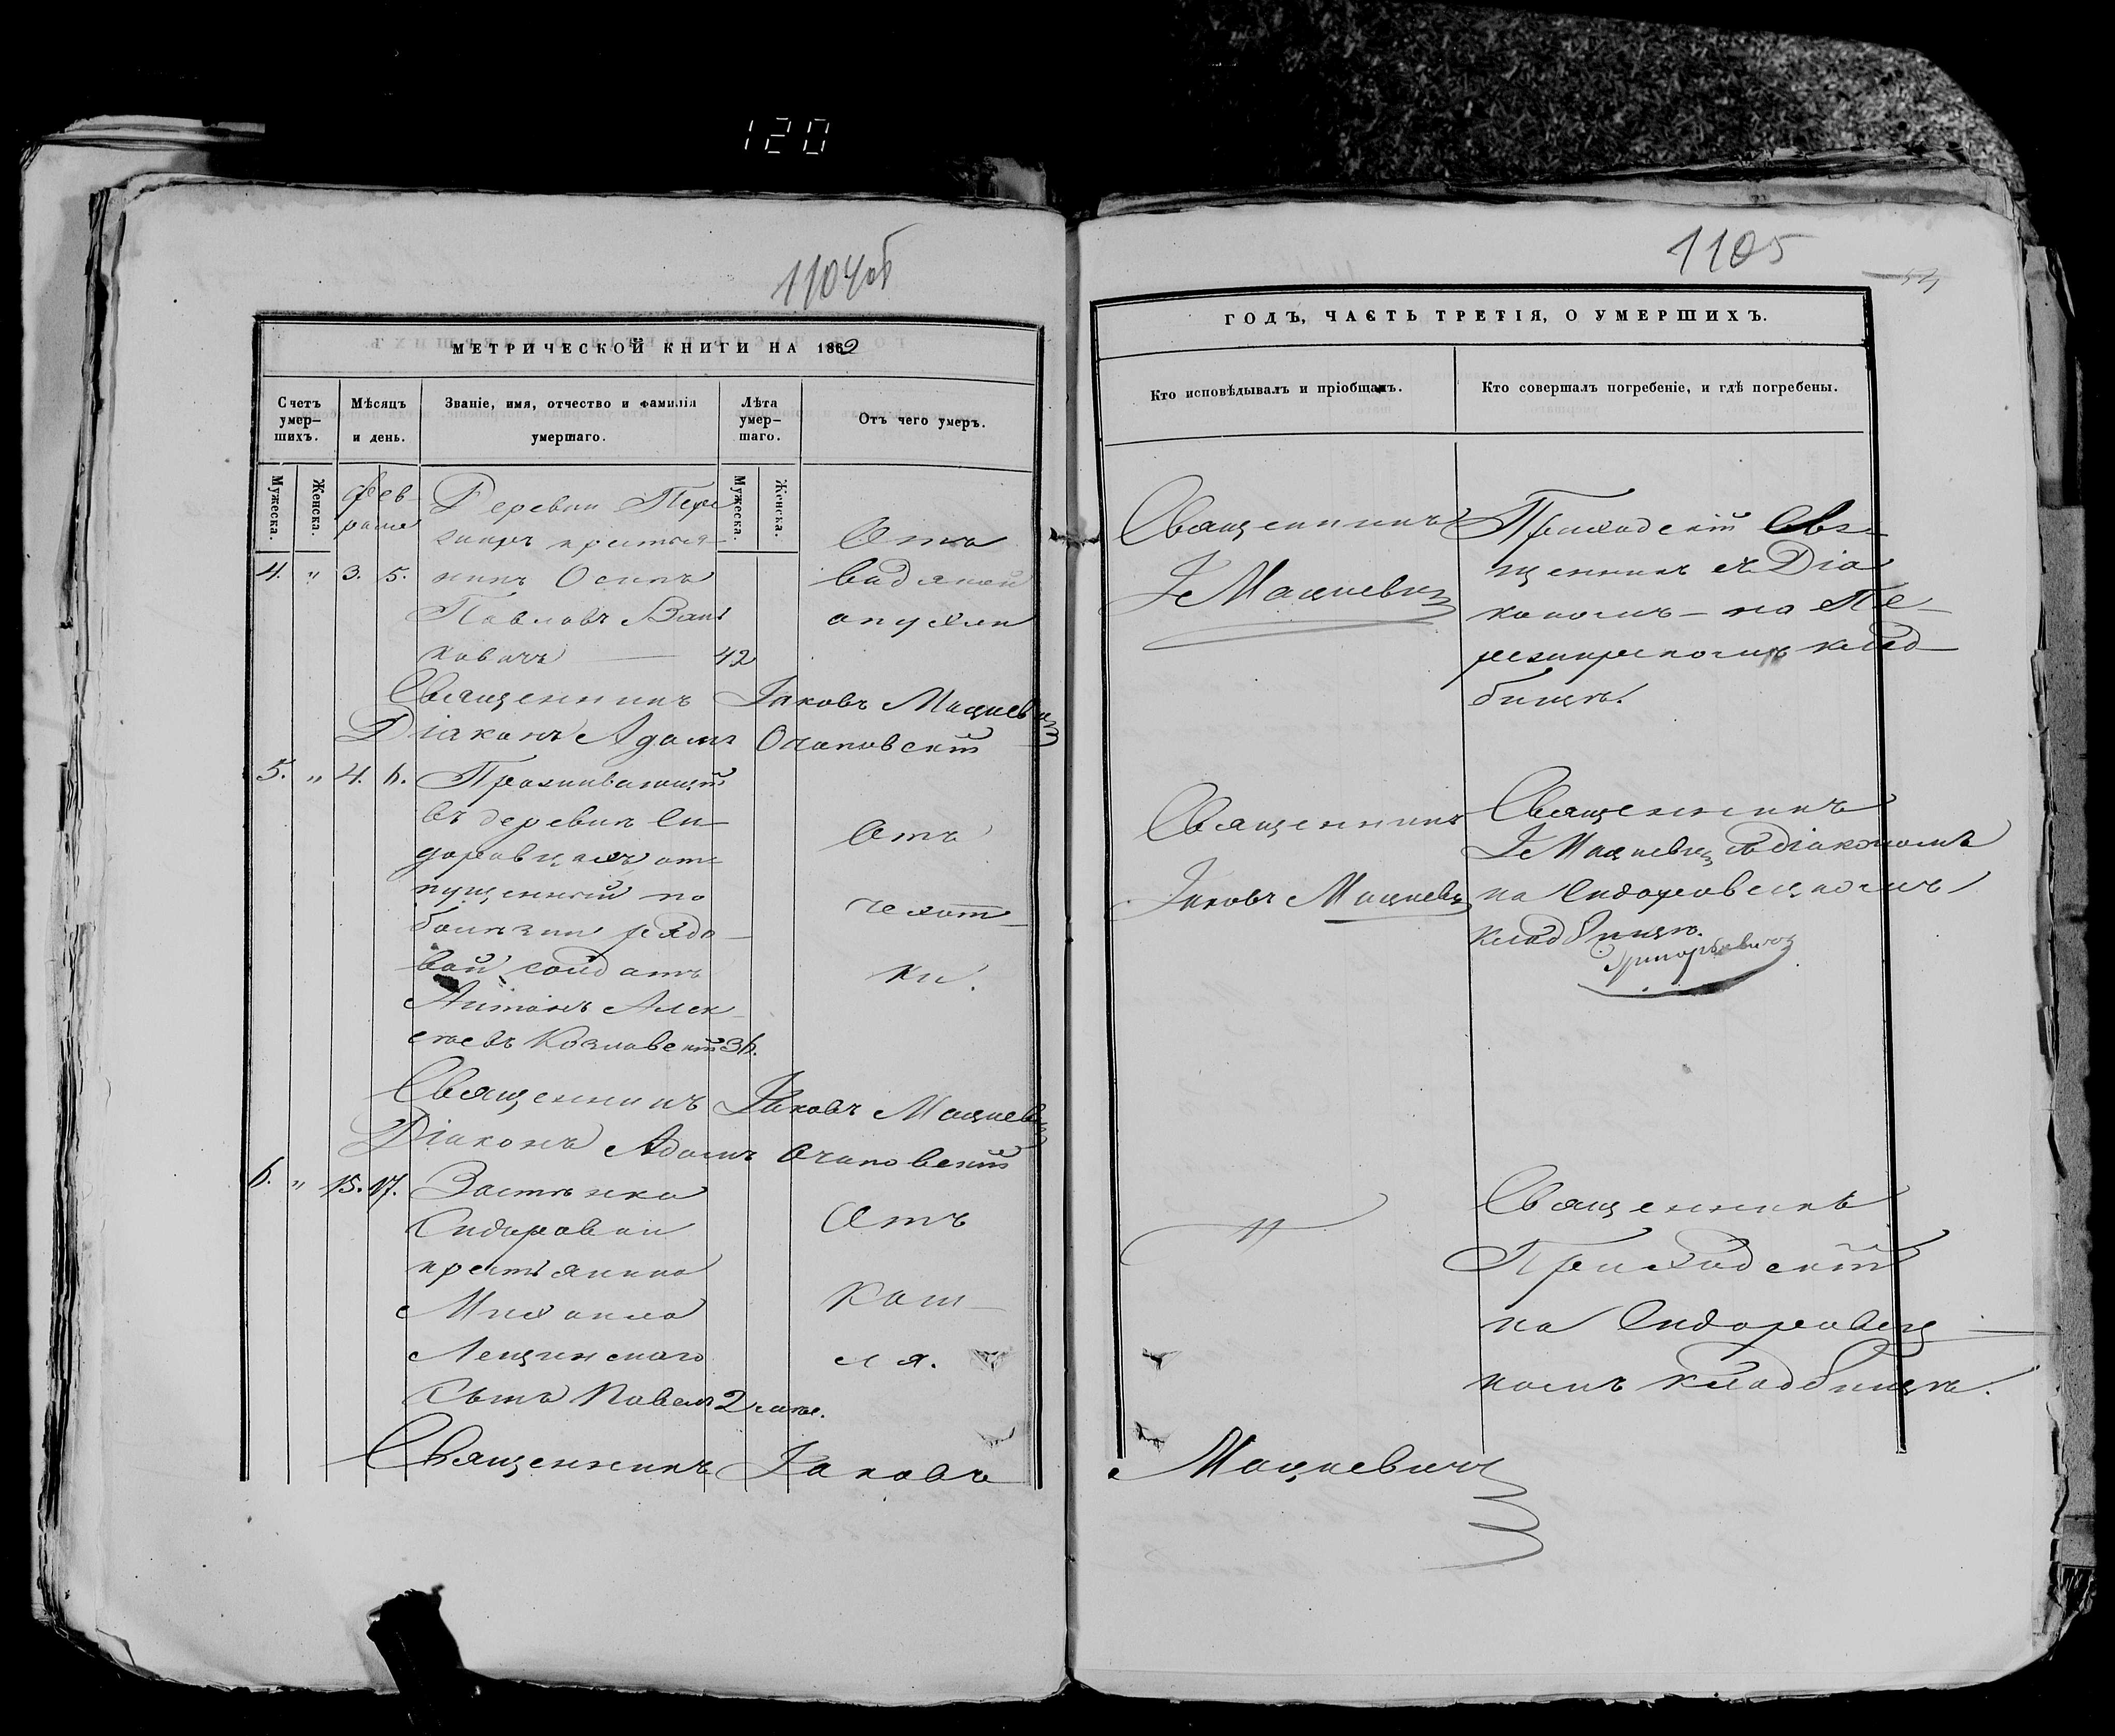 120
1104об
МЕТРИЧЕСКОЙ КНИГИ НА 1862
Счетъ умер-шихъ.
Мѣсяцъ и день.
Званіе, имя, отчество и фамилія умершаго.
Лѣта умер-шаго.
Отъ чего умеръ.
Мужеска.
Женска.
Мужеска.
Женска.
Фев-
раля
4. " 3. 5.
Деревни
крестья-
нинъ Осипъ
Павловъ Вань
ковичь — 42
Отъ
водяной
опухли
Священникъ Іаковъ Мацкевич
Діаконъ Адамъ Очаповскій
5. " 4. 6.
Проживающій
въ деревнѣ Си-
доровцахъ от-
пущенный по
болѣзни рядо-
вой солдатъ
Антонъ Алек-
сѣевъ Козловскій 36.
Отъ
чехот-
ки.
Священникъ Іаковъ Мацкевич
Діаконъ Адамъ Очаповскій
6. " 15. 17.
Застѣнка
Сидоровки
крестьянина
Михаила
Лещинскаго
сынъ Павелъ 2
Отъ
каш-
ля.
Священникъ Іаковъ
1105
ГОДЪ, ЧАСТЬ ТРЕТІЯ, О УМЕРШИХЪ.
Кто исповѣдывалъ и пріобщалъ.
Кто совершалъ погребеніе, и гдѣ погребены.
Священникъ
І Мацкевич
Приходскій Свя-
щенникъ съ Діа
кономъ — на Пе-
клад-
бищѣ.
Священникъ
Іаковъ Мацкевич
Священникъ
І Мацкевич съ діакономъ
на Сидоровецкомъ
кладбищѣ.
"
Священникъ
Приходскій
на Сидоровец-
комъ кладбищѣ.
Мацкевичъ